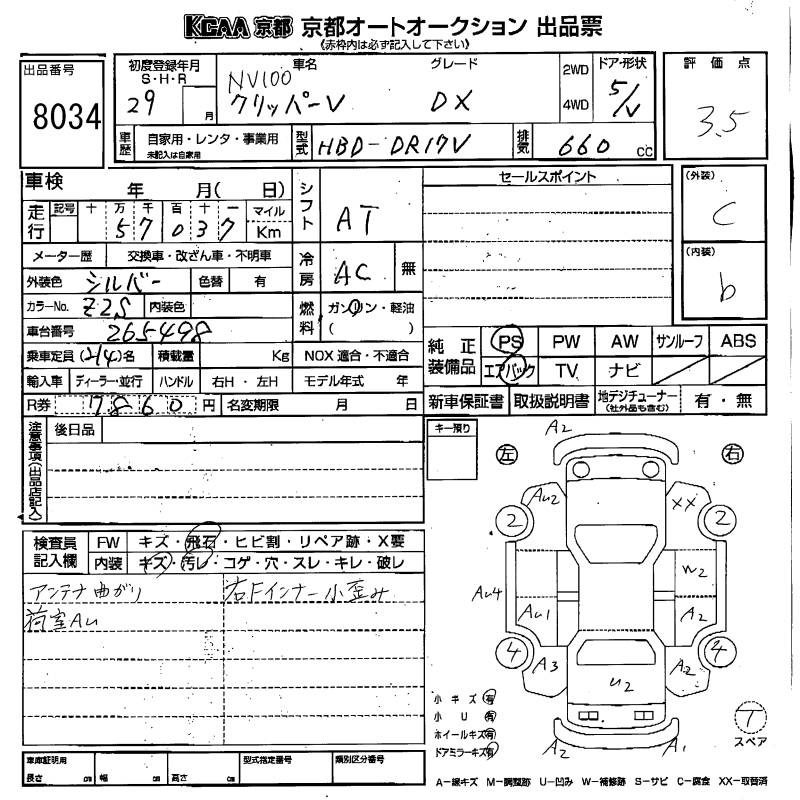 KCAA京都 京都オートオークション 出品票
(赤枠内は必ず記入して下さい)
出品番号
8034
初度登録年月
S・H・R
29 月
車名
NV100
クリッパーV
グレード
DX
2WD
4WD
ドア・形状
5/V
評価点
3.5
車歴
自家用・レンタ・事業用
未記入は自家用
型式
HBD-DR17V
排気
660 cc
車検 年 月( 日)
走行
記号 十 万 千 百 十 一
5 7 0 3 7
マイル
Km
シフト
AT
セールスポイント
(外装)
C
(内装)
b
メーター歴 交換車・改ざん車・不明車
冷房
AC 無
外装色 シルバー 色替 有
カラーNo. Z2S 内装色
燃料
ガソリン・軽油
( )
車台番号 265498
乗車定員 (2/4)名 積載量 Kg NOX 適合・不適合
輸入車 ディーラー・並行 ハンドル 右H・左H モデル年式 年
R券 7860 円 名変期限 月 日
純正装備品
PS PW AW サンルーフ ABS
エアバック TV ナビ
新車保証書 取扱説明書 地デジチューナー 有・無
(社外品も含む)
注意事項(出品店記入)
後日品
キー預り
検査員記入欄
FW キズ・飛石・ヒビ割・リペア跡・X要
内装 キズ・汚レ・コゲ・穴・スレ・キレ・破レ
アンテナ曲がり 右Fインナー小歪み
荷室AU
左 右
A2
AU2 XX
2 2
AU4
W2
AU1 A2
4 4
A3 A2
U2
A2 A1
小キズ 有
小U 有
ホイールキズ 有
ドアミラーキズ 有
T
スペア
車庫証明用
長さ cm 幅 cm 高さ cm
型式指定番号 類別区分番号
A-線キズ M-調整跡 U-凹み W-補修跡 S-サビ C-腐食 XX-取替済